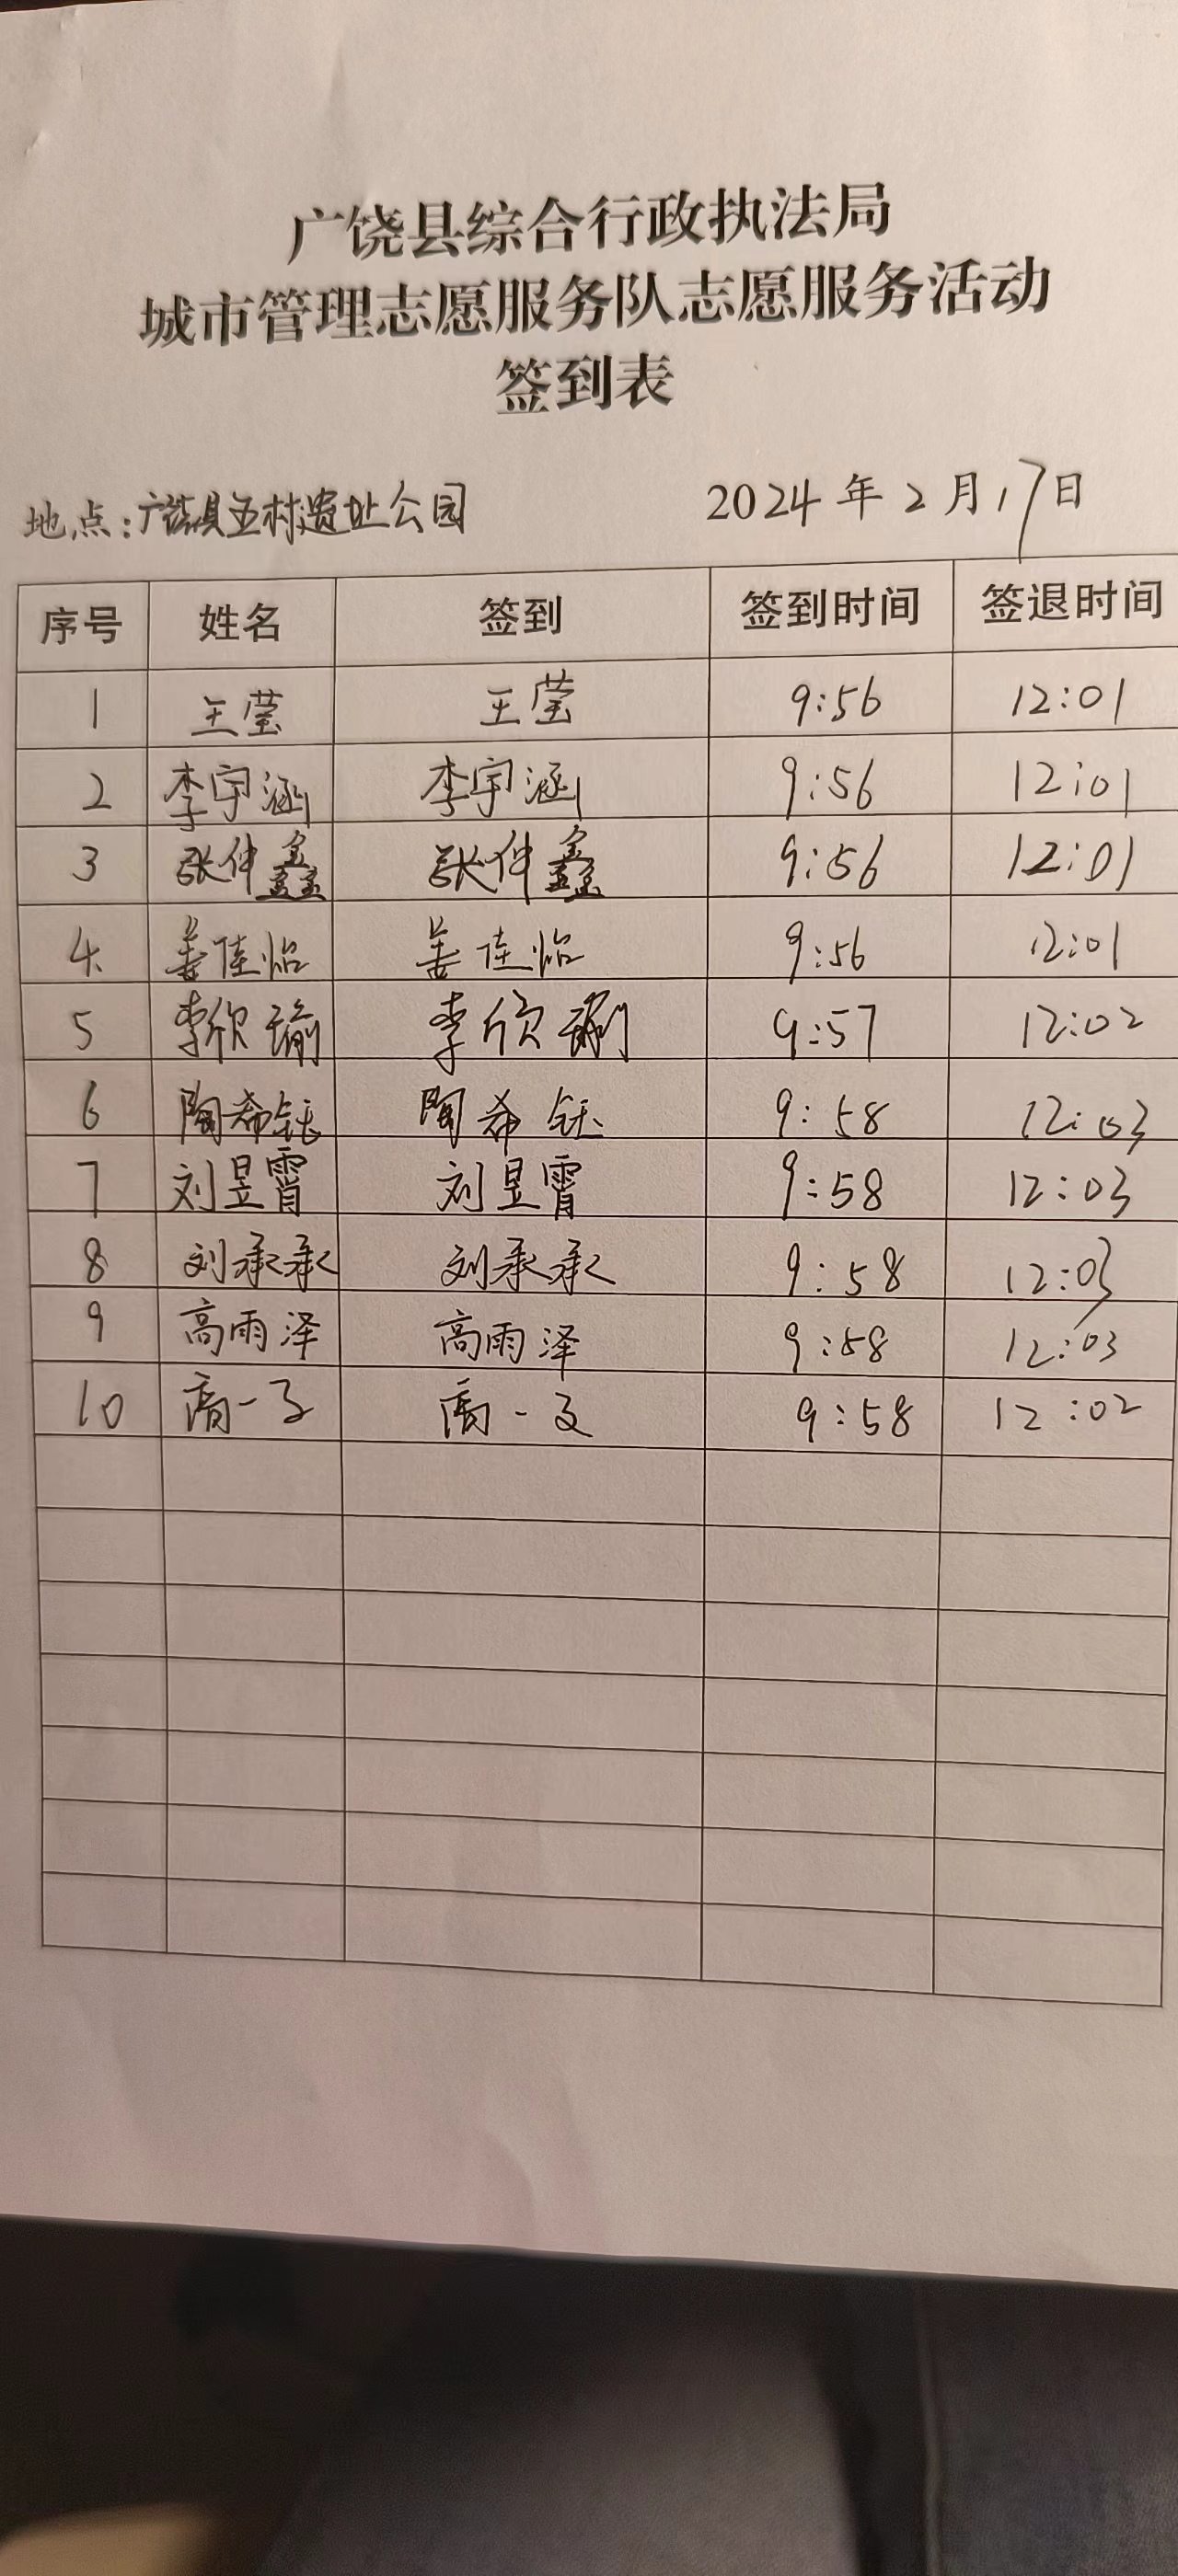 广饶县综合行政执法局
城市管理志愿服务队志愿服务活动
签到表
地点:广饶县五村遗址公园 2024年2月17日
序号 姓名 签到 签到时间 签退时间
1 王莹 王莹 9:56 12:01
2 李宇涵 李宇涵 9:56 12:01
3 张仲鑫 张仲鑫 9:56 12:01
4 姜佳怡 姜佳怡 9:56 12:01
5 李欣瑜 李欣瑜 9:57 12:02
6 陶希钰 陶希钰 9:58 12:03
7 刘昱霄 刘昱霄 9:58 12:03
8 刘承承 刘承承 9:58 12:03
9 高雨泽 高雨泽 9:58 12:03
10 一 一 9:58 12:02